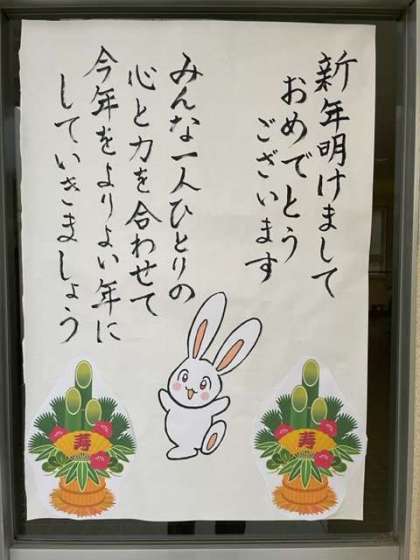 新年明けまして
おめでとう
ございます
みんな一人ひとりの
心と力を合わせて
今年をよりよい年に
していきましょう
寿
寿